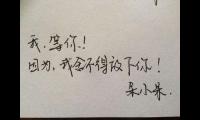 我,等你!
因为,我舍不得放下你!
朵小朵.